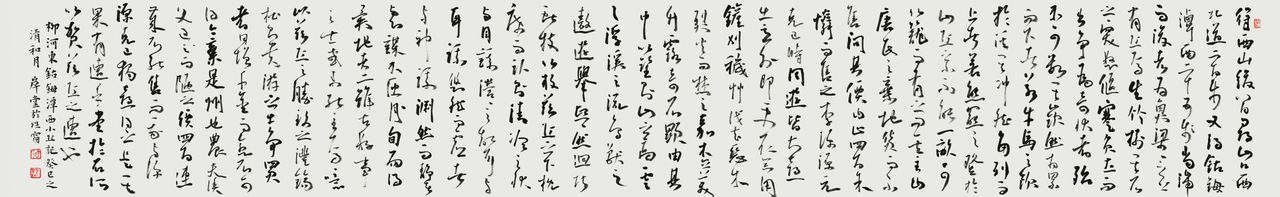 得西山後八日尋山口西
北道二百步又得鈷鉧
潭西二十五步當湍
而浚者為魚梁梁之上
有丘焉生竹樹其石
之突怒偃蹇負土而
出爭為奇狀者殆
不可數其嶔然相累
而下者若牛馬之飲
於溪其冲然角列而
上者若熊羆之登於
山丘之小不能一畝可
以籠而有之問其主曰
唐氏之棄地貨而不
售問其價曰止四百余
憐而售之李深源元
克己時同遊皆大喜出
自意外即更取器用
鏟刈穢艸伐去惡木
烈火而焚之嘉木立美
竹露奇石顯由其
中以望則山之高雲
之浮溪之流鳥獸之
遨遊舉熙熙然迴巧
獻技以效茲丘之下枕
席而卧則清泠之狀
與目謀瀯瀯之聲與
耳謀悠然而虛者
與神謀淵然而靜者
與心謀不匝旬而得
異地者二雖古好事
之士或未能至焉噫
以茲丘之勝致之灃鎬
鄠杜則貴游之士爭買
者日增千金而愈不可
得今棄是州也農夫漁
父過而陋之價四百連
歲不能售而我與深
源克己獨喜得之是其
果有遭乎書於石所
以賀茲丘之遭也
柳河東鈷鉧潭西小丘記癸巳之
清和月